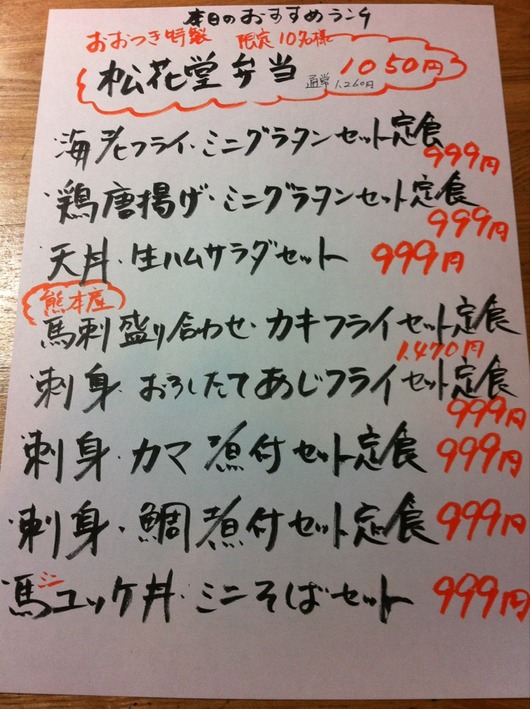 本日のおすすめランチ
おおつき特製 限定10名様
松花堂弁当 通常1,260円 1050円
海老フライ・ミニグラタンセット定食
999円
鶏唐揚げ・ミニグラタンセット定食
999円
天丼・生ハムサラダセット 999円
熊本産
馬刺盛り合わせ・カキフライセット定食
1,470円
刺身・おろしたてあじフライセット定食
999円
刺身・カマ煮付セット定食 999円
刺身・鯛煮付セット定食 999円
馬ミニユッケ丼・ミニそばセット 999円